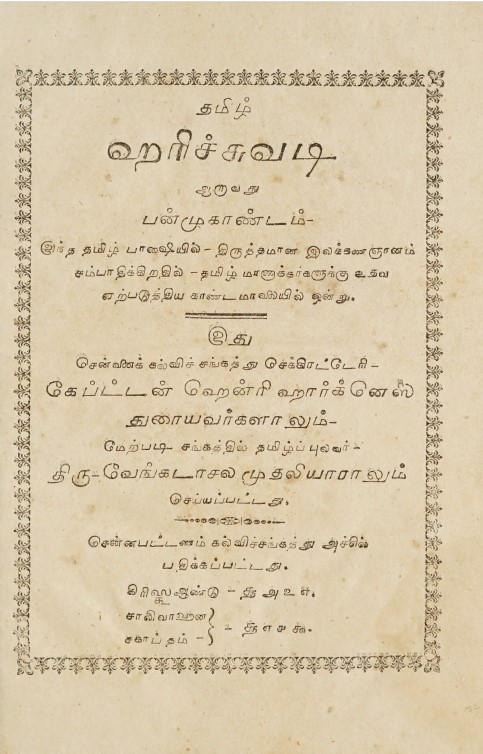 தமிழ்
ஹரிச்சுவடி
ஆருவது
பன்முகாண்டம்-
இந்த தமிழ் பாஷையில்-திருத்தமான இலக்கணஞானம்
சம்பாதிக்கிறதில்-தமிழ் மாணாக்கர்களுக்கு உதவ
ஏற்படுத்திய காண்டமாலையில் ஒன்று.
இது
சென்னைக் கல்விச் சங்கத்து செக்கிரட்டேரி-
கேப்ட்டன் ஹென்ரி ஹார்க்னெஸ்
துரையவர்களாலும்-
மேற்படி சங்கத்தில் தமிழ்ப்புலவர்-
திரு-வேங்கடாசல முதலியாராலும்
செய்யப்பட்டது.
சென்னபட்டணம் கல்விச்சங்கத்து அச்சில்
பதிக்கப்பட்டது.
கிரிஸ்துஆண்டு-
சாலிவாஹன
சகாப்தம்-